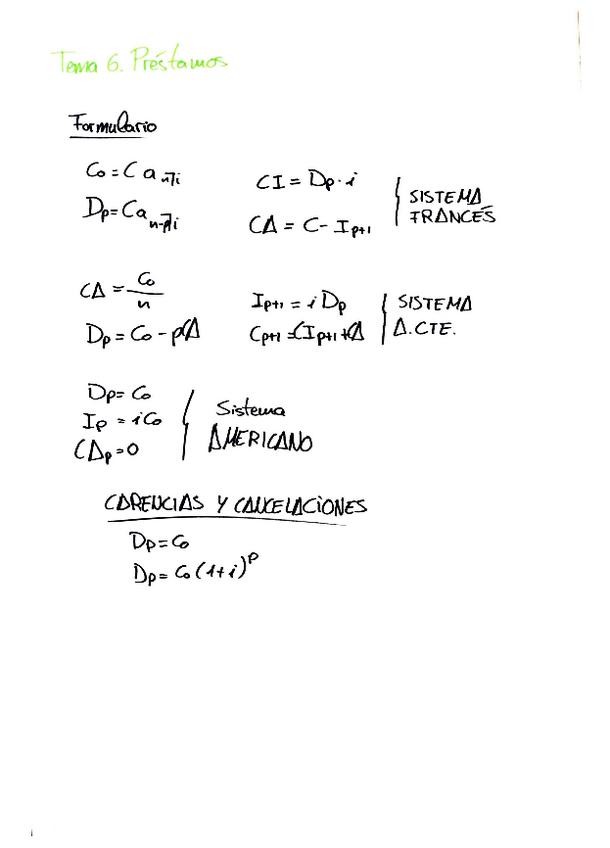 Tema 6. Préstamos
Formulario
Co = C a n¬i
CI = Dp · i
Dp = Ca n-p¬i
CA = C - Ip+1
SISTEMA
FRANCÉS
CA = Co/n
Ip+1 = i Dp
Dp = Co - pCA
Cp+1 = Ip+1 + CA
SISTEMA
A. CTE.
Dp = Co
Ip = i Co
CAp = 0
Sistema
AMERICANO
CARENCIAS Y CANCELACIONES
Dp = Co
Dp = Co (1+i)^p